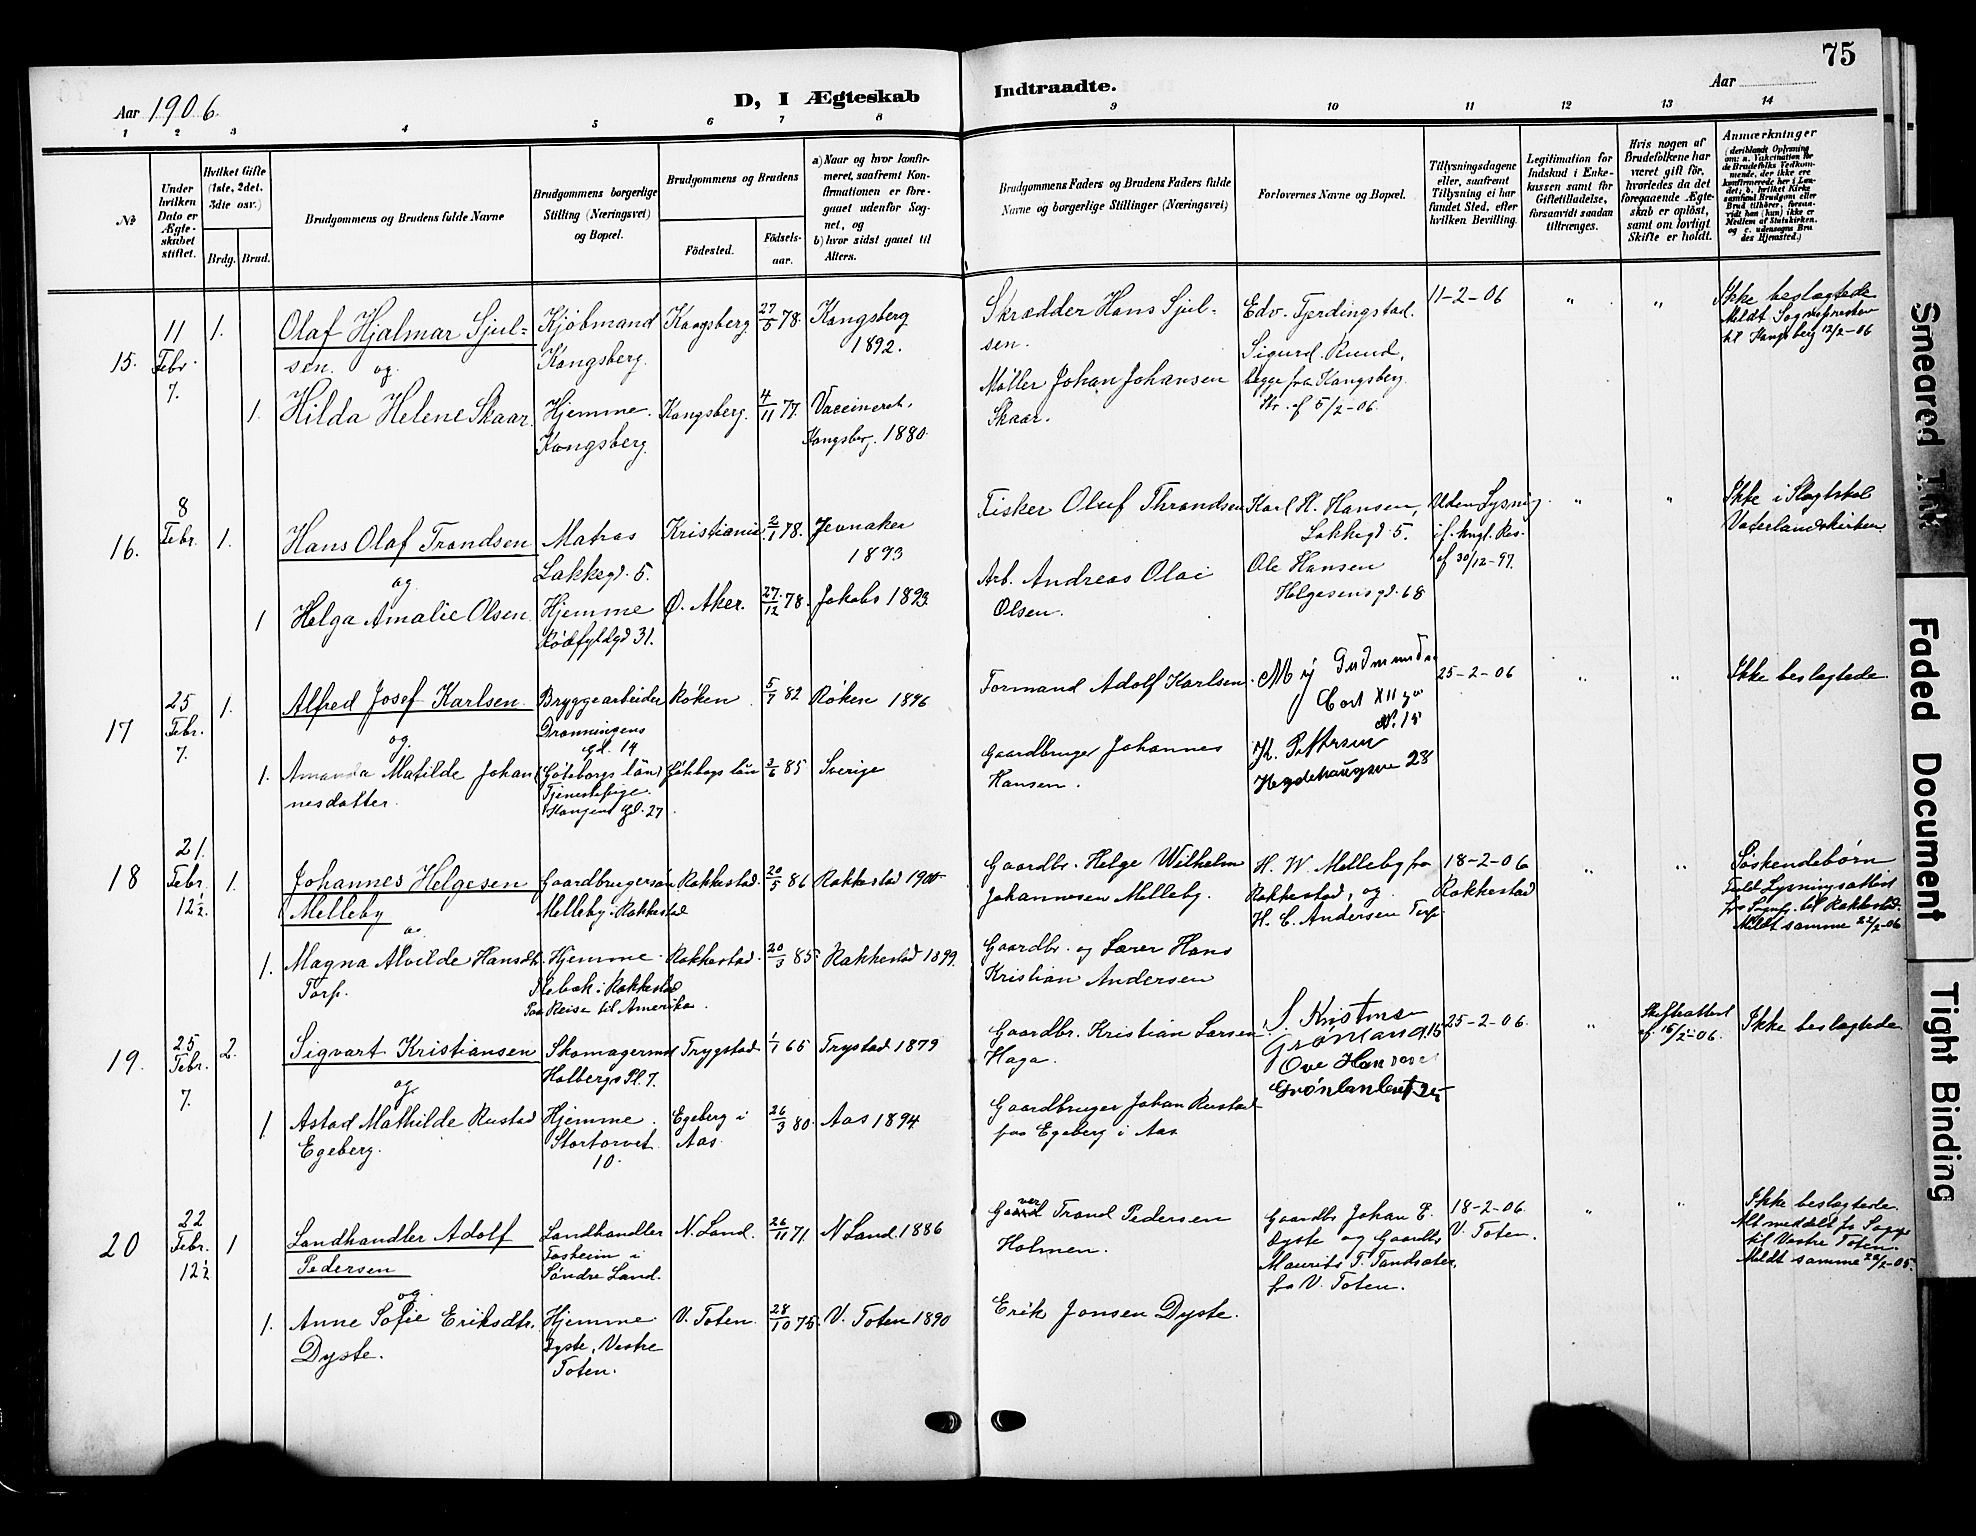 75
Aar 1906.
D, I Ægteskab
Indtraadte.
Aar
1 2 3 4 5 6 7 8 9 10 11 12 13 14
No
Under hvilken Dato er Ægteskabet stiftet.
Hvilket Gifte (1ste, 2det, 3die osv.)
Brdg. Brud.
Brudgommens og Brudens fulde Navne
Brudgommens borgerlige Stilling (Næringsvei) og Bopæl.
Brudgommens og Brudens
Födested. Födselsaar.
a) Naar og hvor konfirmeret, saafremt Konfirmationen er foregaaet udenfor Sognet, og
b) hvor sidst gaaet til Alters.
Brudgommens Faders og Brudens Faders fulde Navne og borgerlige Stillinger (Næringsvei)
Forlovernes Navne og Bopæl.
Tillysningsdagene eller, saafremt Tillysning ei har fundet Sted, efter hvilken Bevilling.
Legitimation for Indskud i Enkekassen samt for Giftetilladelse, forsaavidt saadan tiltrænges.
Hvis nogen af Brudefolkene har været gift før, hvorledes da det foregaaende Ægteskab er opløst, samt om lovligt Skifte er holdt.
Anmærkninger
(deriblandt Oplysning om: a. Vakcination for de Brudefolks Vedkommende, der ikke ere konfirmerede her i Landet; b. hvilket Kirkesamfund Brudgom eller Brud tilhører, forsaavidt han (hun) ikke er Medlem af Statskirken, og c. udensogns Brudes Hjemsted.)
15.
11 Febr. 7.
1.
Olaf Hjalmar Sjulsen. og
Kjøbmand Kongsberg.
Kongsberg. 27/5 78.
Kongsberg 1892.
Skrædder Hans Sjulsen.
Edv. Fjerdingstad.
Sigurd Ruud,
begge fra Kongsberg.
Str. af 5/2-06.
11-2-06
" "
Ikke beslægtede
Meldt Sognepresten
til Kongsberg 12/2-06
1.
Hilda Helene Skaar.
Hjemme. Kongsberg.
Kongsberg. 4/11 77.
Vaccineret, Kongsberg. 1880.
Møller Johan Johansen Skaar.
16.
8 Febr.
1.
Hans Olaf Trondsen
og
Matros
Lakkegd. 5.
Kristiania 2/1 78.
Jevnaker 1893
Fisker Oluf Throndsen
Karl H. Hansen,
Lakkegd. 5.
Ole Hansen
Helgesensgd. 68
Uden Lysning
i f. kngl. Res.
af 30/12-97.
" "
Ikke i Slægtskab
Vaterlandskirken
1
Helga Amalie Olsen
Hjemme
Rødfyldgd 31.
Ø. Aker. 27/12 78.
Jakobs 1893.
Arb. Andreas Olai Olsen.
17
25 Febr. 7.
1.
Alfred Josef Karlsen.
og
Bryggearbeider
Dronningens gd. 14
Røken 5/7 82
Røken 1896
Formand Adolf Karlsen.
25-2-06
" "
Ikke beslægtede.
1.
Amanda Matilde Johannesdatter.
(Göteborgs län)
Tjenestepige.
gd. 27
Göteborgs län 85
Sverige
Gaardbruger Johannes Hansen.
18
21. Febr. 12½.
1.
Johannes Helgesen Melleby
og
Gaardbrugersøn
Melleby. Rakkestad
Rakkestad. 20/5 86
Rakkestad 1900
Gaardbr. Helge Wilhelm
Johannesen Melleby.
H. W. Melleby fra
Rakkestad, og
H. C. Andersen Torp.
18-2-06
Rakkestad
" "
Søskendebørn
Fuld Lysningsattest
fra Sognepr. til Rakkestad.
Meldt samme 22/2-06
1.
Magna Alvilde Hansdt. Torp.
Hjemme
i Rakkestad
Paa Reise til Amerika.
Rakkestad. 20/3 85.
Rakkestad 1899.
Gaardbr. og Lærer Hans
Kristian Andersen
19.
25 Febr. 7.
2.
Sigvart Kristiansen
og
Skomagermd
Holbergs Pl. 7.
Trygstad 1/1 65
Trystad 1879
Gaardbr. Kristian Larsen
Haga.
25-2-06.
"
Skifteattest
af 15/2-06.
Ikke beslægtede
1.
Astad Mathilde Rustad
Egeberg.
Hjemme.
Stortorvet 10.
Egeberg i Aas. 26/3 80.
Aas 1894
Gaardbruger Johan Rustad
paa Egeberg i Aas.
20
22 Febr. 12½
1
Landhandler Adolf Pedersen
og
Landhandler
Fosheim i
Søndre Land.
N. Land. 26/11 71
N. Land. 1886
Trond Pedersen
Holmen.
Gaardbr. Johan E.
Dyste og Gaardbr.
Maurits T. Tandsæter,
fra V. Toten.
18-2-06.
V. Toten.
" "
Ikke beslægtede.
til Vestre Toten.
Meldt samme
1.
Anne Sofie Eriksdtr.
Dyste.
Hjemme.
Dyste, Vestre Toten.
V. Toten. 28/10 75.
V. Toten 1890
Erik Jonsen Dyste.
Smeared Ink
Faded Document
Tight Binding